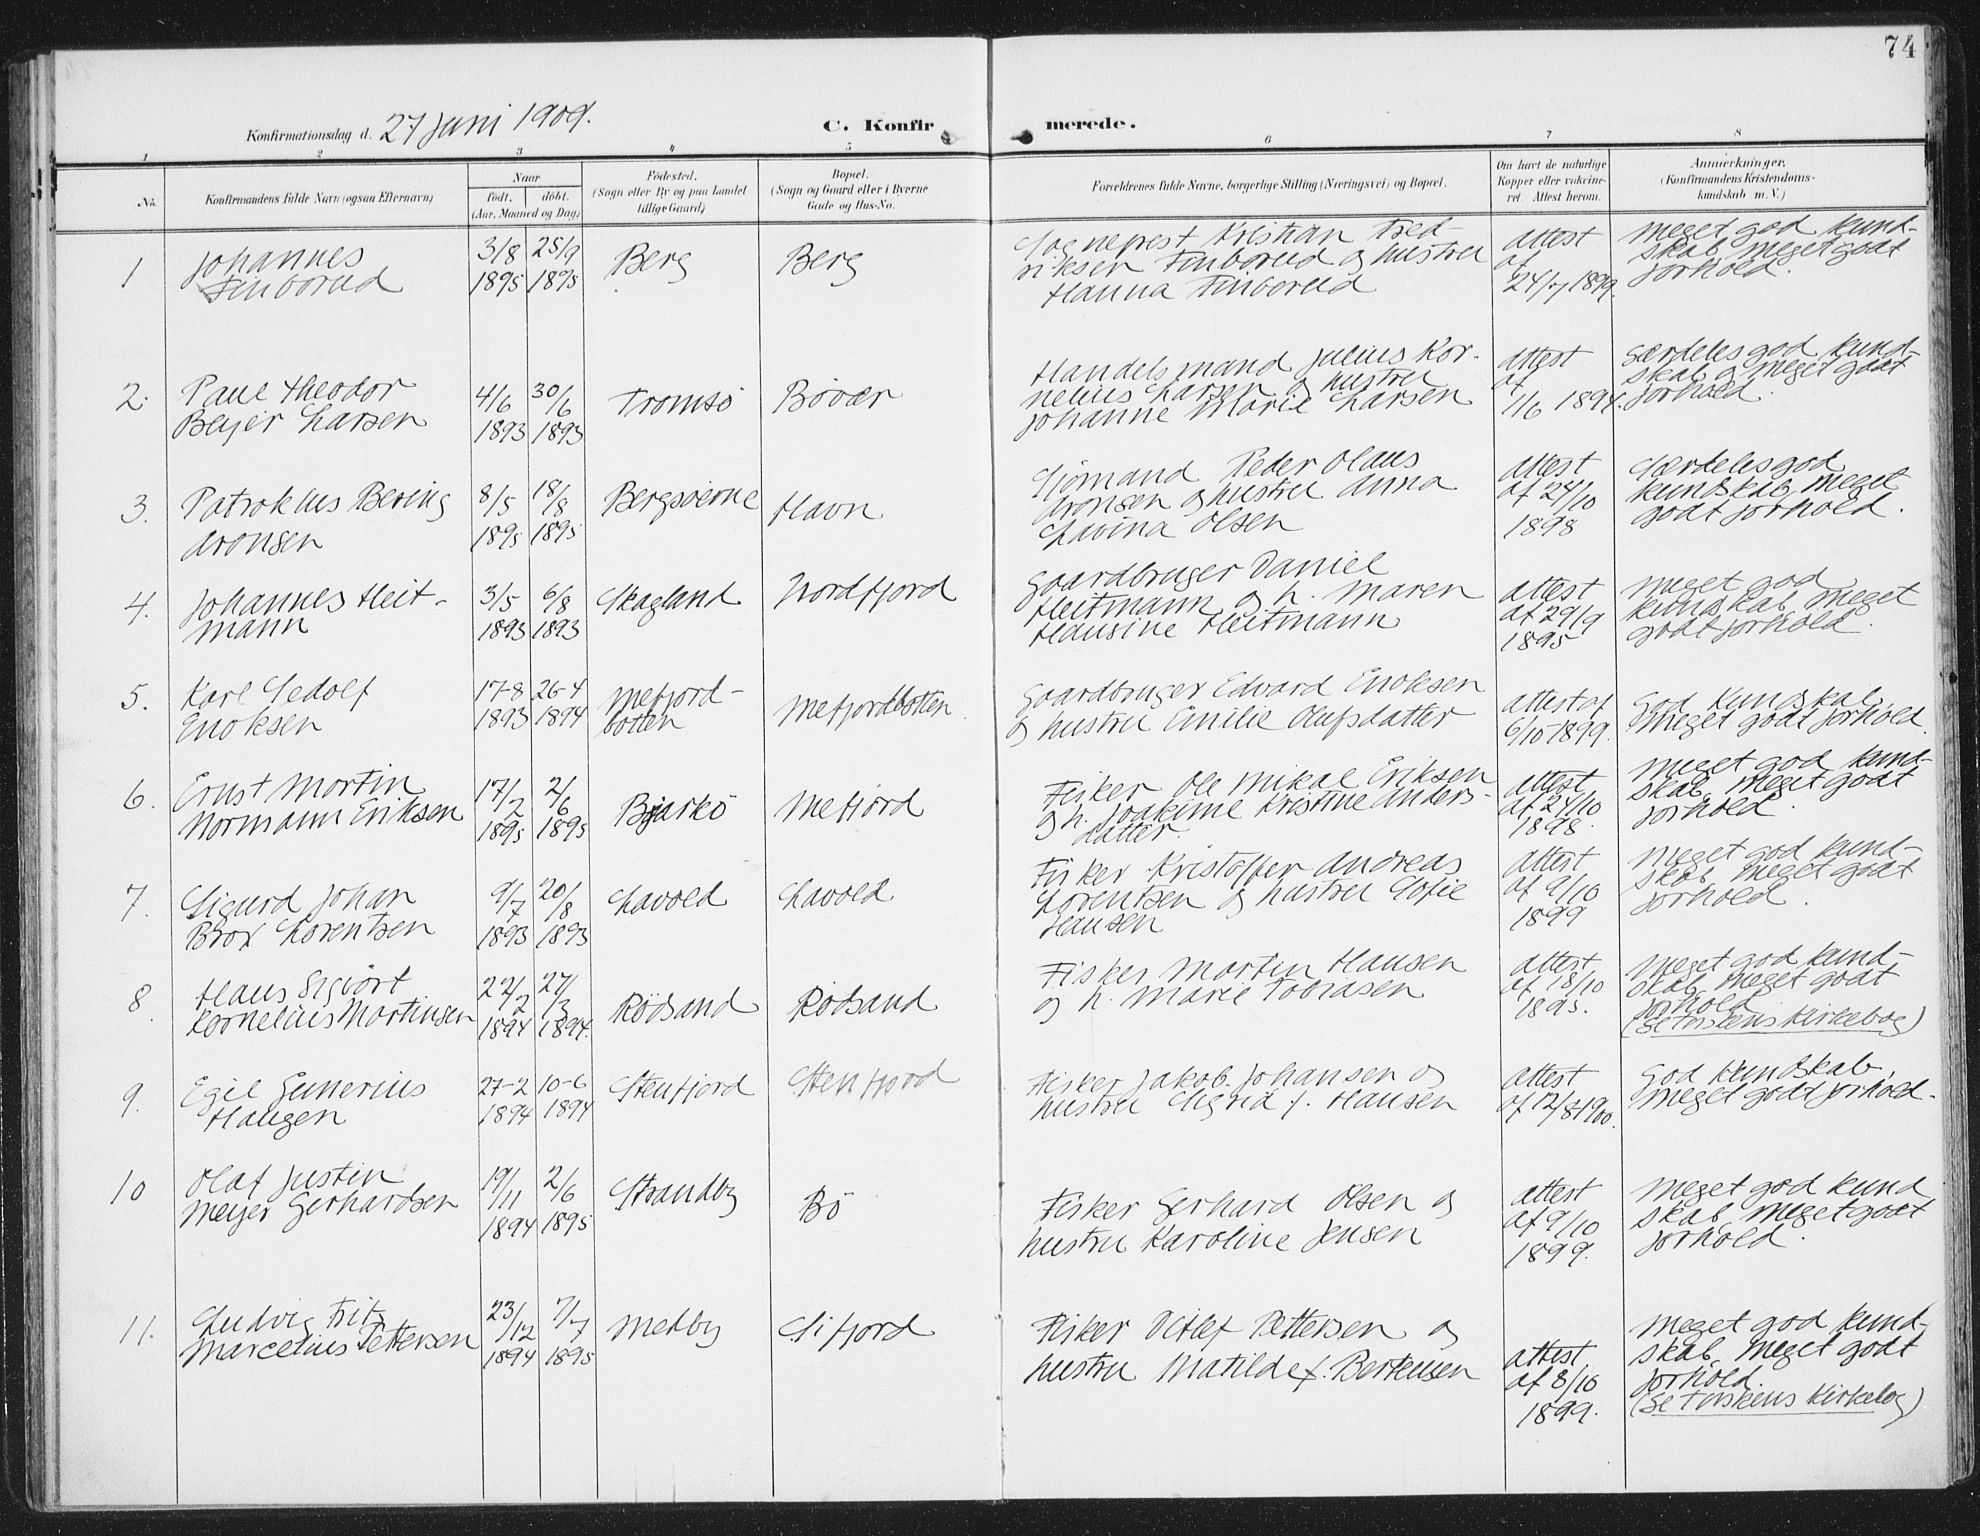 74
Konfirmationsdag d. 27 Juni 1909.
C. Konfirmerede.
1 2 3 4 5 6 7 8
No.
Konfirmandens fulde Navn (ogsaa Efternavn)
Naar
født. døbt.
(Aar, Maaned og Dag)
Fødested.
(Sogn eller By og paa Landet
tillige Gaard)
Bopæl.
(Sogn og Gaard eller i Byerne
Gade og Hus-No.
Forældrenes fulde Navne, borgerlige Stilling (Næringsvei) og Bopæl.
Om havt de naturlige
Kopper eller vakcine-
ret. Attest herom.
Anmærkninger.
(Konfirmandens Kristendoms-
kundskab m. V.)
1
Johannes
Finborud
3/8 1895
25/9 1895
Berg
Berg
Sogneprest Kristian Fred-
riksen Finborud og hustru
Hanna Finborud
attest
af
24/7 1899.
Meget god kund-
skab, meget godt
forhold.
2.
Paul Theodor
Beyer Larsen
4/6 1893
30/6 1893
Tromsö
Bövær
Handelsmand Julius Kor-
nelius Larsen og hustru
Johanne Marie Larsen
attest
af
1/6 1894.
Særdeles god kund-
skab og meget godt
forhold.
3.
Patroklus Bering
Aronsen
8/5 1895
18/8 1895
Bergsöerne
Havn
Sjömand Peder Olaus
Aronsen og hustru Anna
Lavina Olsen
attest
af 24/10
1898
Særdeles god
kundskab, meget
godt forhold.
4.
Johannes Heit-
mann
3/5 1893
6/8 1893
Skagland
Nordfjord
Gaardbruger Daniel
Heitmann og h. Maren
Hansine Heitmann
attest
af 29/9
1895
Meget god
kundskab, meget
godt forhold.
5.
Karl Sedolf
Enoksen
17-8 1893
26-4 1894
Mefjord-
botten
Mefjordbotten
Gaardbruger Edvard Enoksen
og hustru Emilie Olufsdatter
attest af
6/10 1899.
God kundskab,
meget godt forhold.
6.
Ernst Martin
Normann Eriksen
17/2 1895
2/6 1895
Bjarkö
Mefjord
Fisker Ole Mikal Eriksen
og h. Joakime Kristine Anders-
datter
attest
af 24/10
1898.
Meget god kund-
skab, meget godt
forhold.
7.
Sigurd Johan
Brox Lorentsen
9/7 1893
20/8 1893
Lavold
Lavold
Fisker Kristoffer Andreas
Lorentsen og hustru Sofie
Hansen
attest
af 9/10
1899
Meget god kund-
skab, meget godt
forhold.
8.
Hans Sigvort
Kornelius Martinsen
22/2 1894
27/3 1894.
Rödsand
Rödsand
Fisker Martin Hansen
og h. Marie Tobiasen
attest
af 18/10
1895.
Meget god kund-
skab, meget godt
forhold
(Se Torskens kirkebog)
9.
Egil Gunerius
Haugen
27-2 1894
10-6 1894
Stenfjord
Stenfjord
Fisker Jakob Johansen og
hustru Sigrid J. Hansen
attest
af 12/8 1900.
God kundskab,
meget godt forhold.
10
Olaf Justin
Meyer Gerhardsen
19/11 1894
2/6 1895
Strandby
Bö
Fisker Gerhard Olsen og
hustru Karoline Jensen
attest
af 9/10
1899.
Meget god kund
skab, meget godt
forhold.
11.
Ludvig Fritz
Marcelius Pettersen
23/12 1894
7/7 1895
Medby
Sifjord
Fisker Ditlef Pettersen og
hustru Matilde f. Berteusen
attest
af 8/10
1899.
Meget god kund-
skab, meget godt
forhold.
(Se Torskens kirkebog)